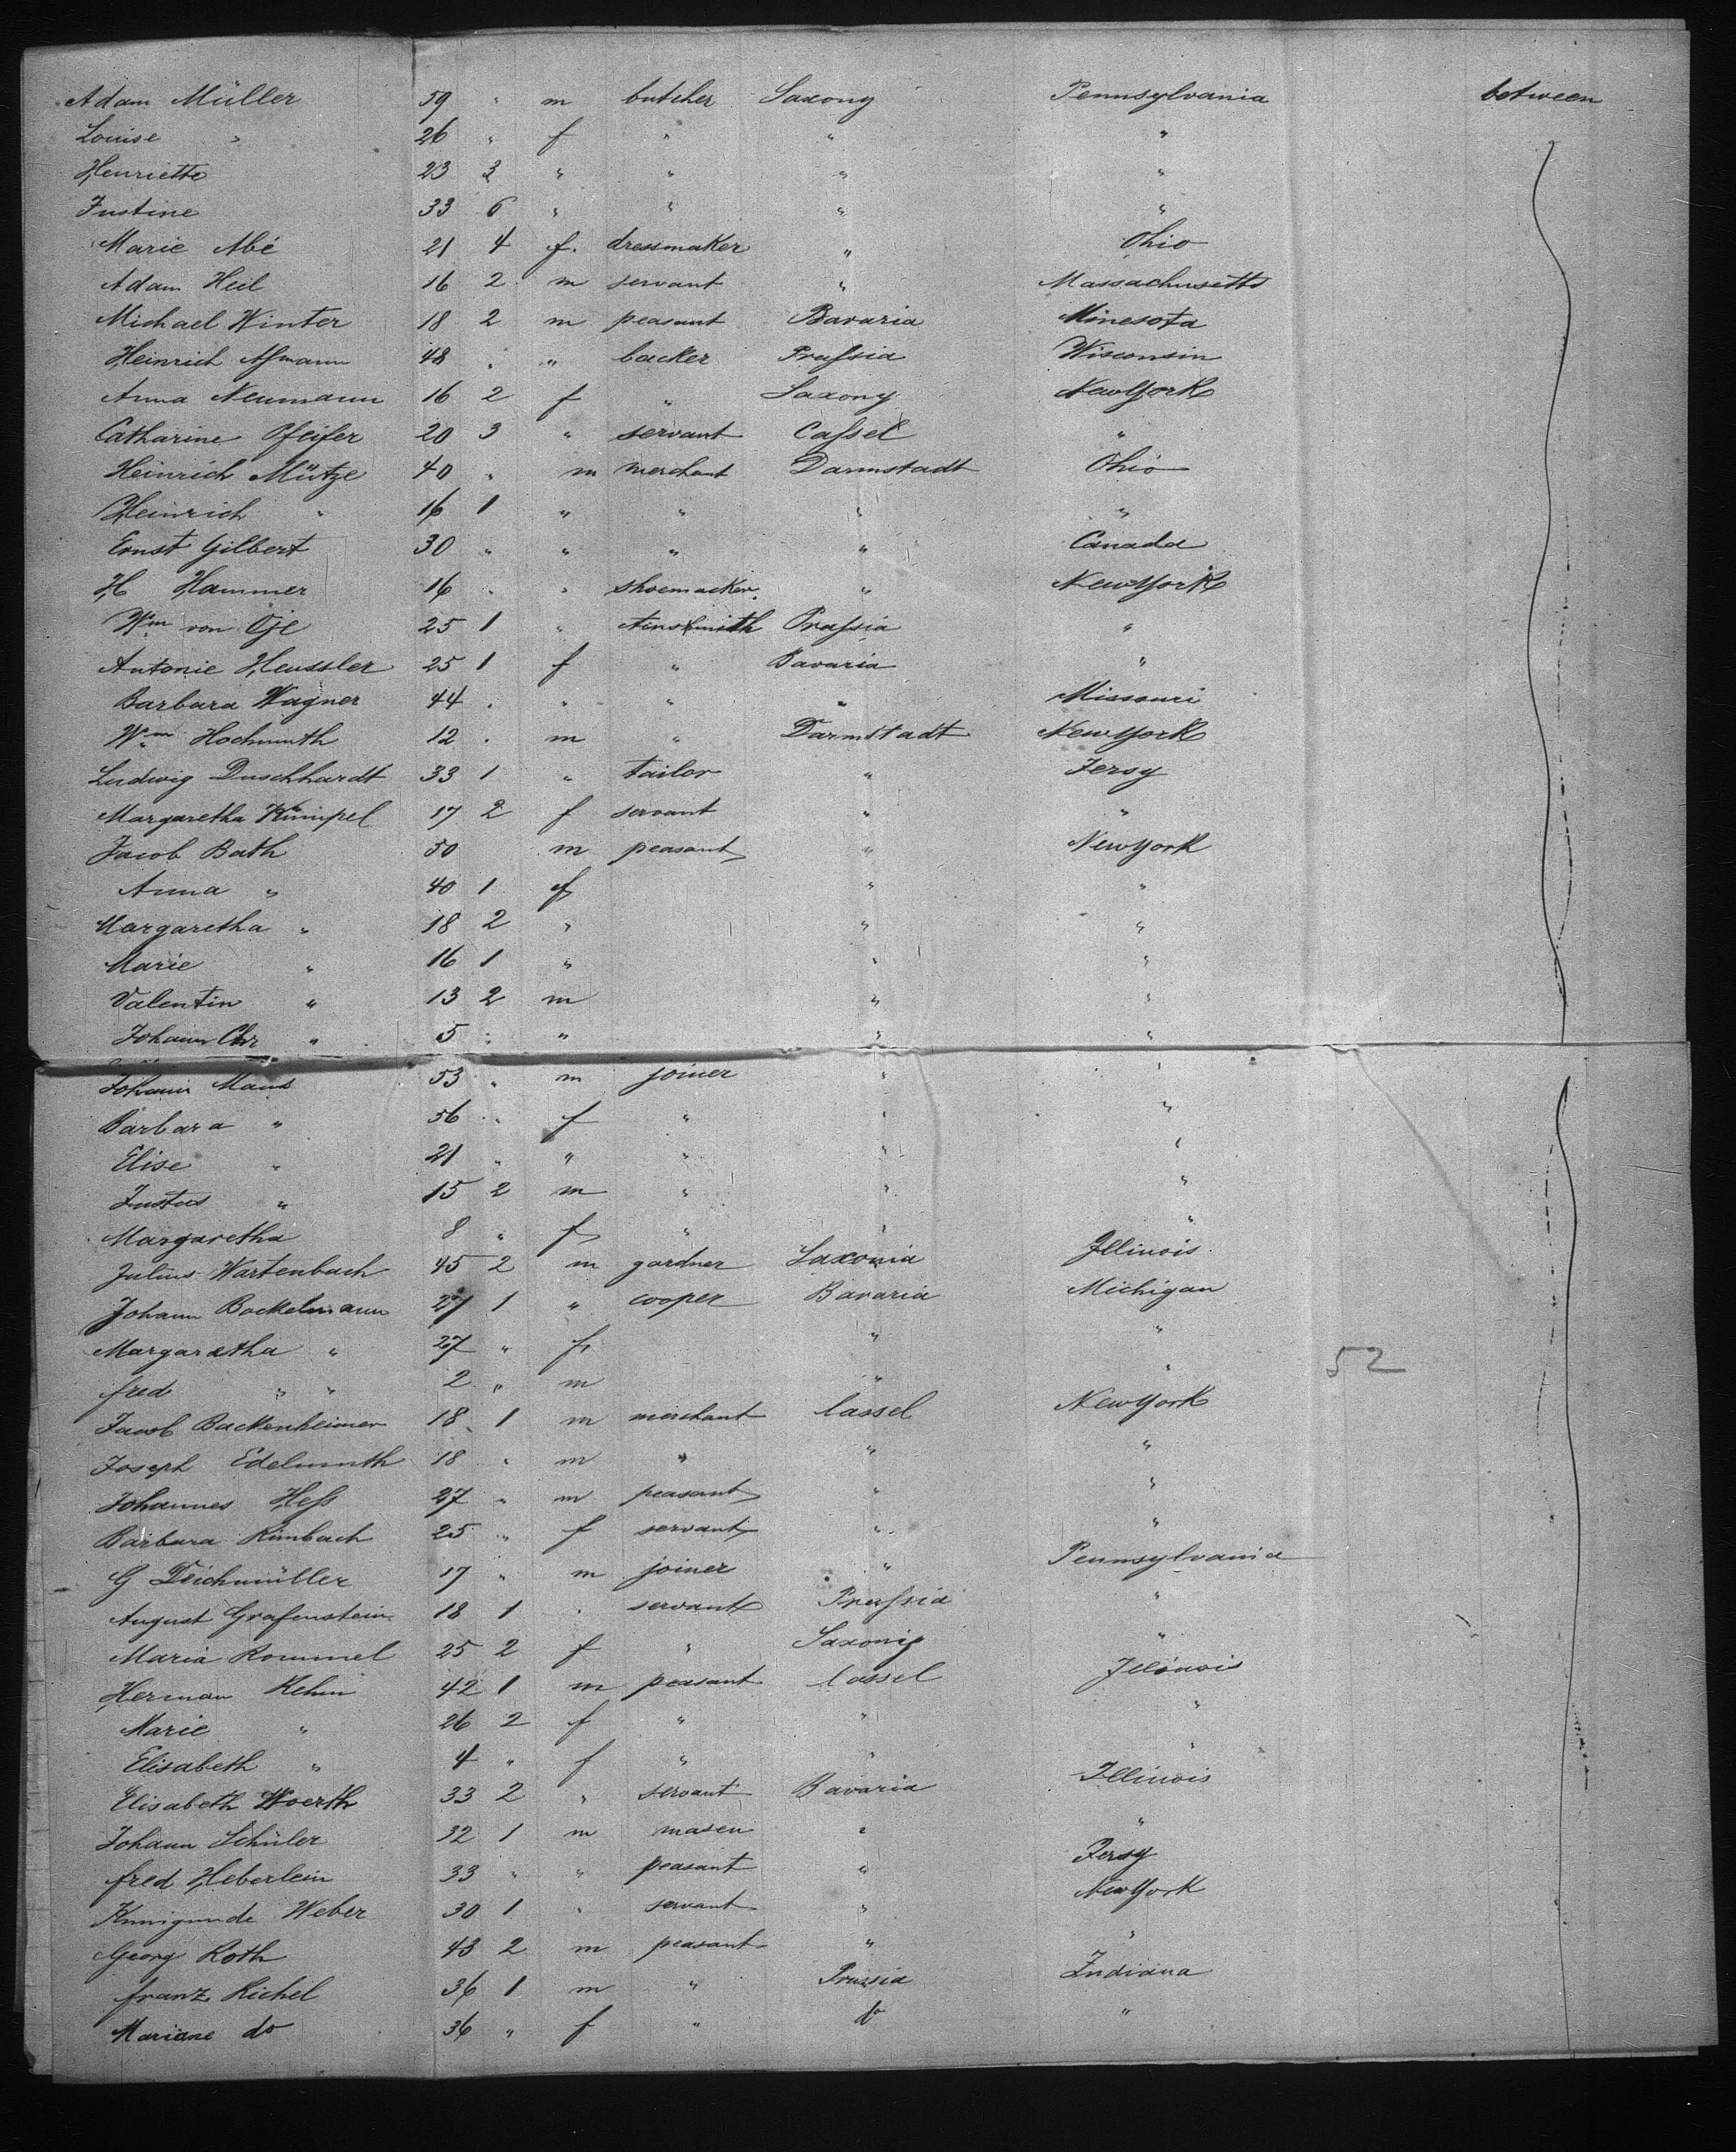 Adam Müller 59 " m butcher Saxony Pennsylvania between
Louise " 26 " f " " "
Henriette 23 3 " " " "
Justine 33 6 " " " "
Marie Abé 21 4 f. dressmaker " Ohio
Adam Heil 16 2 m servant " Massachusetts
Michael Winter 18 2 m peasant Bavaria Minesota
Heinrich Aſmann 48 " " backer Pruſsia Wisconsin
Anna Neumann 16 2 f " Saxony NewYork
Catharine Pfeifer 20 3 " servant Caſsel "
Heinrich Mütze 40 " m merchant Darmstadt Ohio
Heinrich " 16 1 " " " "
Ernst Gilbert 30 " " " " Canada
H Hammer 16 " " shoemacker " NewYork
Wm von 25 1 " Pruſsia "
Antonie Heussler 25 1 f " Bavaria "
Barbara Wagner 44 " " " " Missouri
Wm Hochmuth 12 " m " Darmstadt NewYork
Ludwig Duschhardt 33 1 " tailor " Jersy
Margaretha Kümpel 17 2 f servant " "
Jacob Bath 50 m peasant " NewYork
Anna " 40 1 f " "
Margaretha " 18 2 " " "
Marie " 16 1 " " "
Valentin " 13 2 m " "
Johann Chr " 5 " " " "
Johann Maus 53 " m joiner " "
Barbara " 56 " f " " "
Elise " 21 " " " " "
Justus " 15 2 m " " "
Margaretha 8 " f " " "
Julius Wartenbach 45 2 m gardner Saxonia Illinois
Johann Bockelmann 27 1 " cooper Bavaria Michigan
Margaretha " 27 " f " "
fred " " 2 " m " " 52
Jacob Backenheimer 18 1 m merchant Cassel NewYork
Joseph Edelmuth 18 " m " " "
Johannes Heſs 27 " m peasant " "
Barbara Rimbach 25 " f servant " "
G Teichmüller 17 " m joiner " Pennsylvania
August Grafenstein 18 1 " servant Preuſsia "
Maria Rommel 25 2 f " Saxony "
Herman Kehm 42 1 m peasant Cassel Illinois
Marie " 26 2 f " " "
Elisabeth " 4 " f " " "
Elisabeth Woerth 33 2 " servant Bavaria Illinois
Johann Schüler 32 1 m masen " "
fred Heberlein 33 " " peasant " Jersy
Kunigunde Weber 30 1 " servant " NewYork
Georg Roth 43 2 m peasant " "
franz Kichel 36 1 m " Prussia Indiana
Mariane do 36 " f " do "